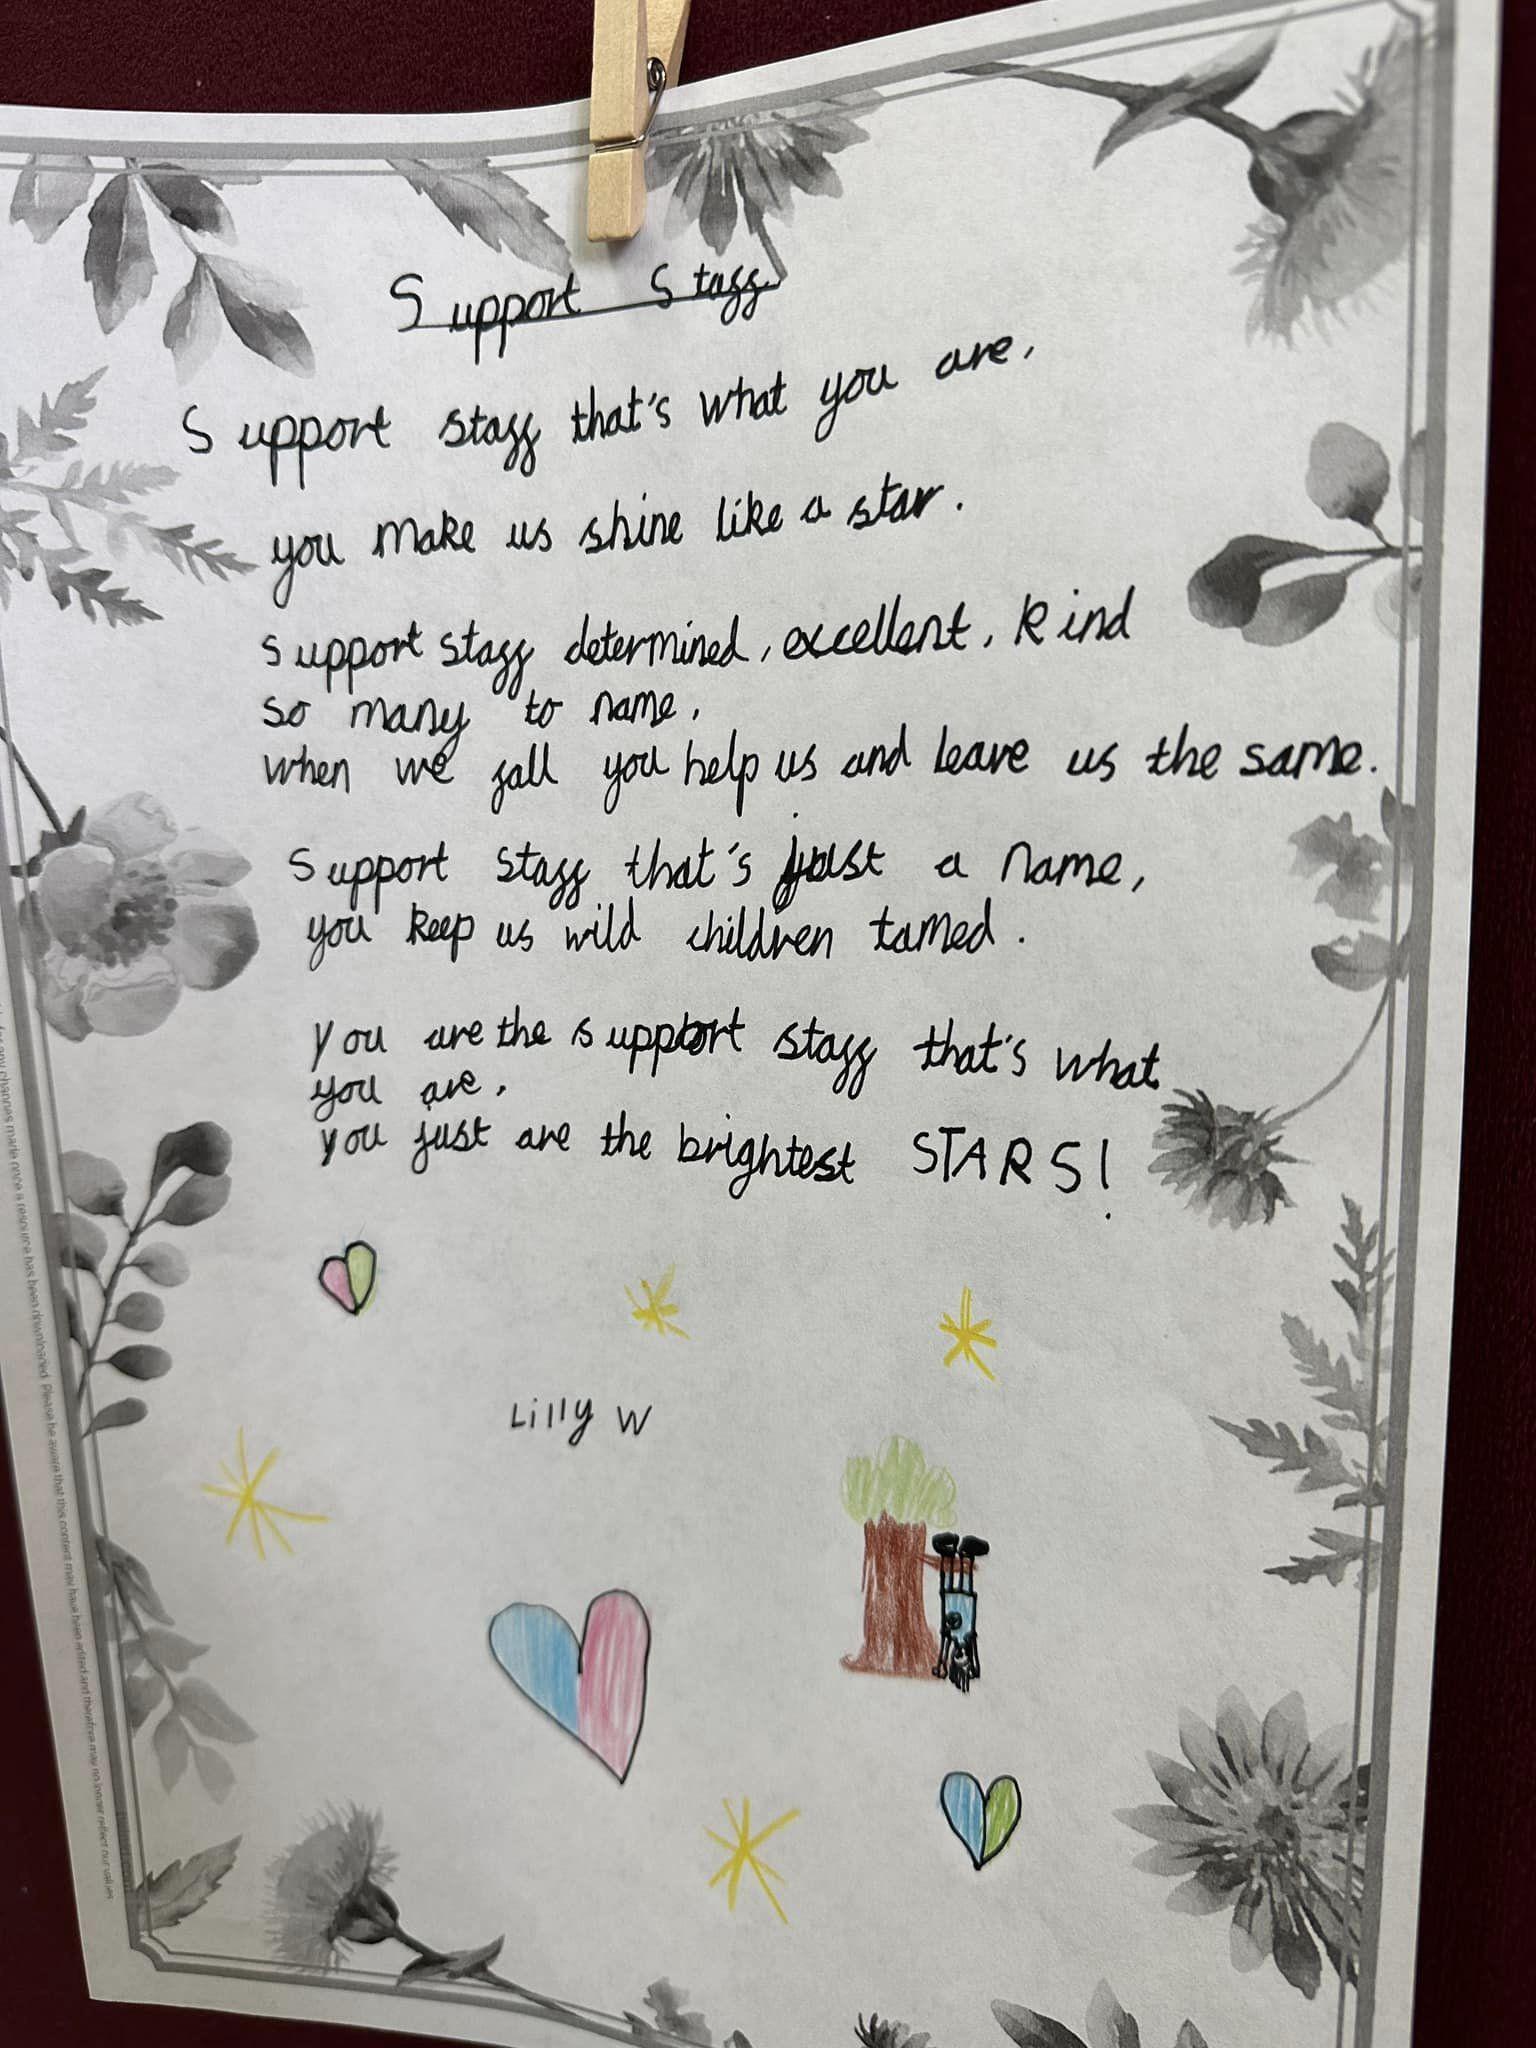 Support Staff
Support staff that's what you are,
you make us shine like a star.
support staff determined, excellent, kind
so many to name,
when we fall you help us and leave us the same.
Support staff that's just a name,
you keep us wild children tamed.
You are the support staff that's what
you are,
you just are the brightest STARS!
Lilly W
any changes made once a resource has been downloaded. Please be aware that this content may have been edited and therefore may no longer reflect our values